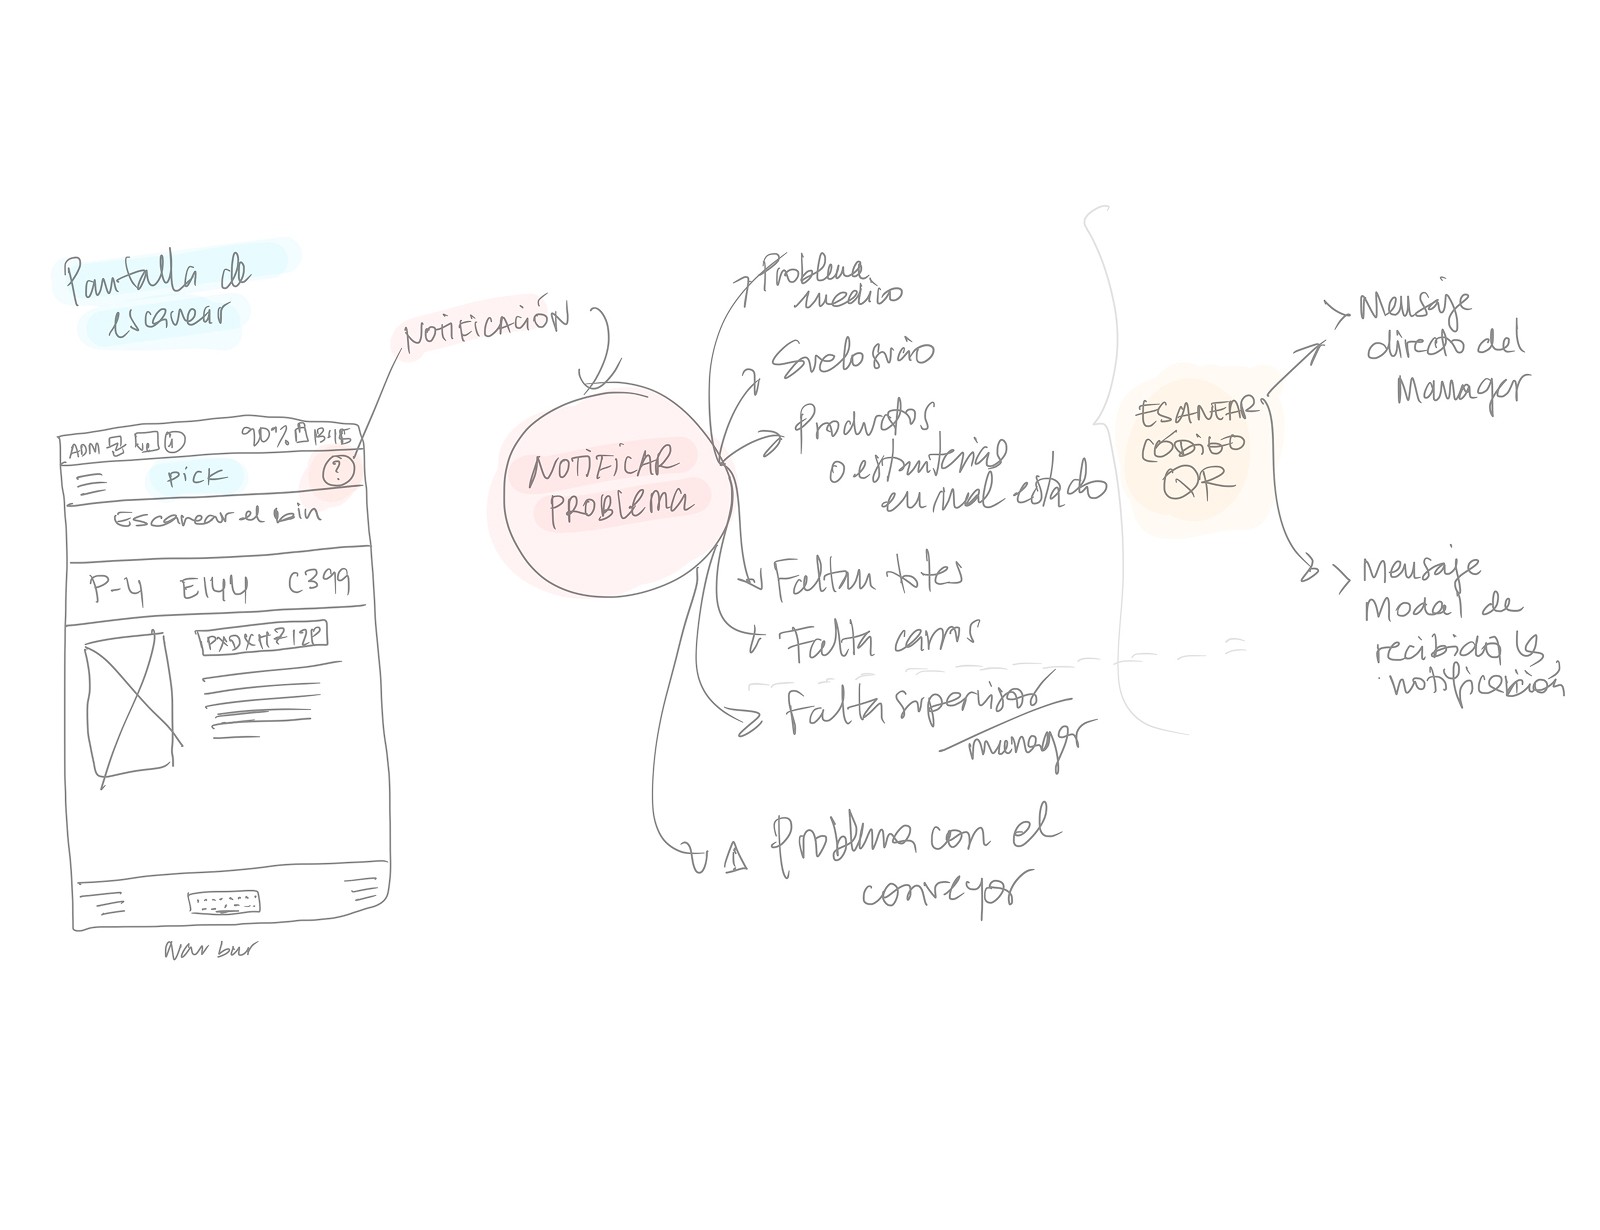 Pantalla de
escanear
NOTIFICACIÓN
ADM
90%
13:15
PICK
?
Escanear el bin
P-4 E144 C399
PXDXHZ12P
Nav bar
NOTIFICAR
PROBLEMA
Problema
medico
Suelo sucio
Productos
o estanterias
en mal estado
Faltan totes
Falta carros
Falta supervisor
manager
Problema con el
conveyor
ESANEAR
CÓDIGO
QR
Mensaje
directo del
Manager
Mensaje
Modal de
recibida la
notificación